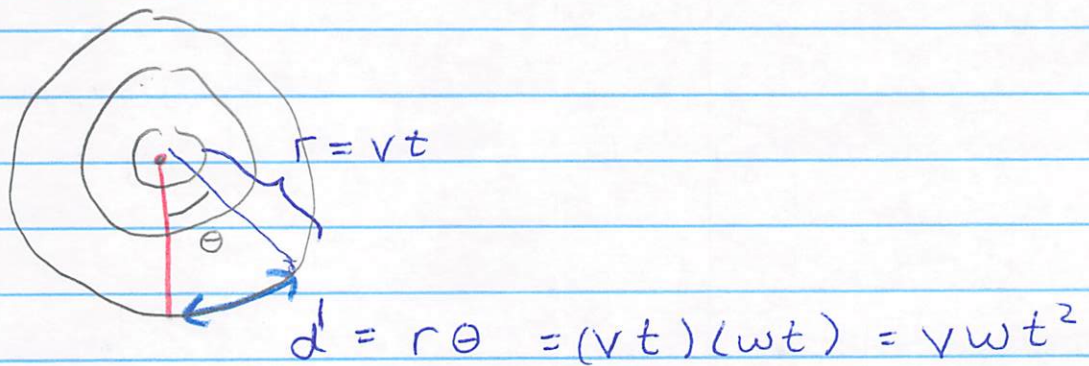 r = vt
θ
d = rθ = (vt)(ωt) = vωt²